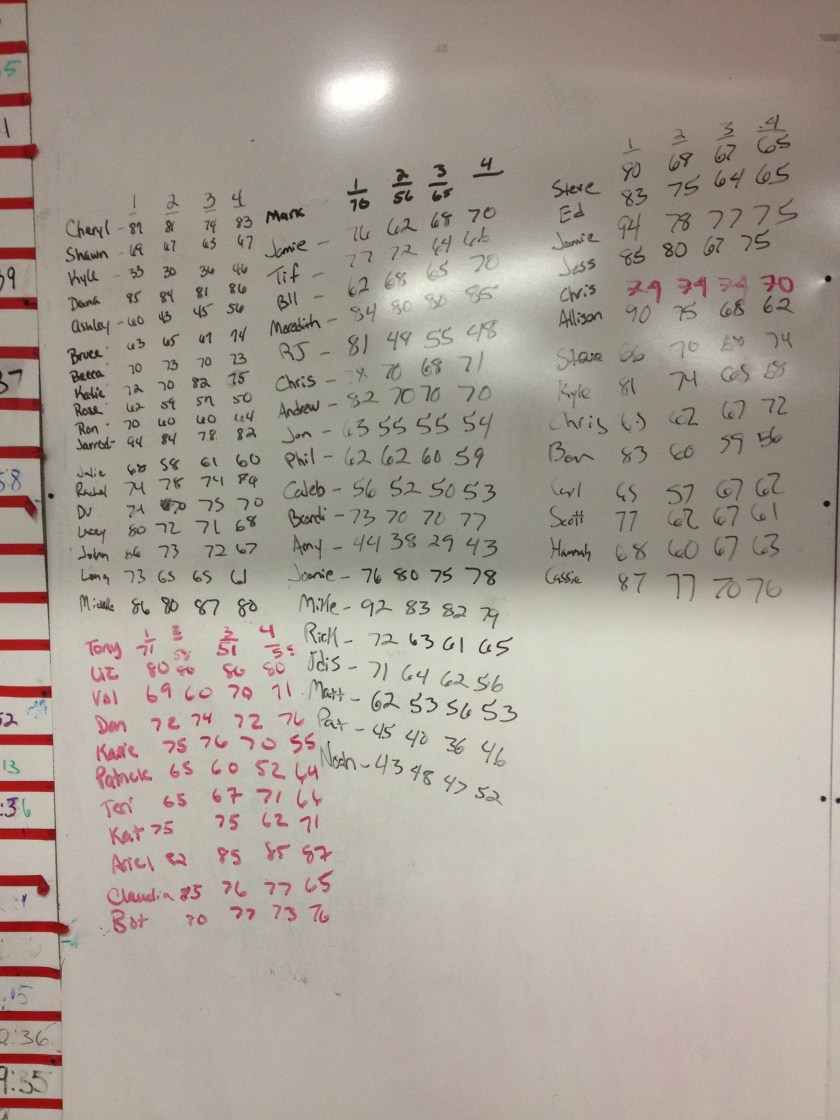 1 2 3 4
Cheryl - 89 81 79 83
Shawn - 69 67 65 67
Kyle - 33 30 36 46
Dana 85 84 81 86
Ashley - 60 43 45 56
Bruce 63 65 67 74
Becca 70 73 70 73
Katie 72 70 82 75
Rose 62 59 57 50
Ron 70 60 60 64
Jarrod - 94 84 78 82
Julie 68 58 61 60
Rachel 74 78 74 84
DV 74 70 75 70
Lacey 80 72 71 68
John 66 73 72 67
Long 73 65 65 61
Michelle 86 80 87 80
1 2 3 4
Tony 71 58 51 55
Liz 80 80 80 80
Val 69 60 70 71
Dan 72 74 72 76
Katie 75 76 70 55
Patrick 65 60 52 64
Teri 65 67 71 66
Kat 75 75 62 71
Ariel 82 85 85 87
Claudia 85 76 77 65
Bot 70 77 73 76
1 2 3 4
Mark 70 56 65
Jamie - 76 62 68 70
Tif - 77 72 64 66
Bll - 62 68 65 70
Meredith - 84 80 80 85
RJ - 81 49 55 48
Chris - 78 70 68 71
Andrew - 82 70 70 70
Jon - 63 55 55 54
Phil - 62 62 60 59
Caleb - 56 52 50 53
Brandi - 73 70 70 77
Amy - 44 38 29 43
Joanie - 76 80 75 78
Mike - 92 83 82 79
Rick - 72 63 61 65
71 64 62 56
Matt - 62 53 56 53
Pat - 45 40 36 46
Noah - 43 48 47 52
1 2 3 4
Steve 80 69 67 65
Ed 83 75 64 65
Jamie 94 78 77 75
Jess 85 80 67 75
Chris 74 74 74 70
Allison 90 75 68 62
Steve 66 70 74
Kyle 81 74 65 68
Chris 65 62 67 72
Ben 83 60 59 56
Carl 65 57 67 62
Scott 77 62 67 61
Hannah 68 60 67 63
Cassie 87 77 70 76